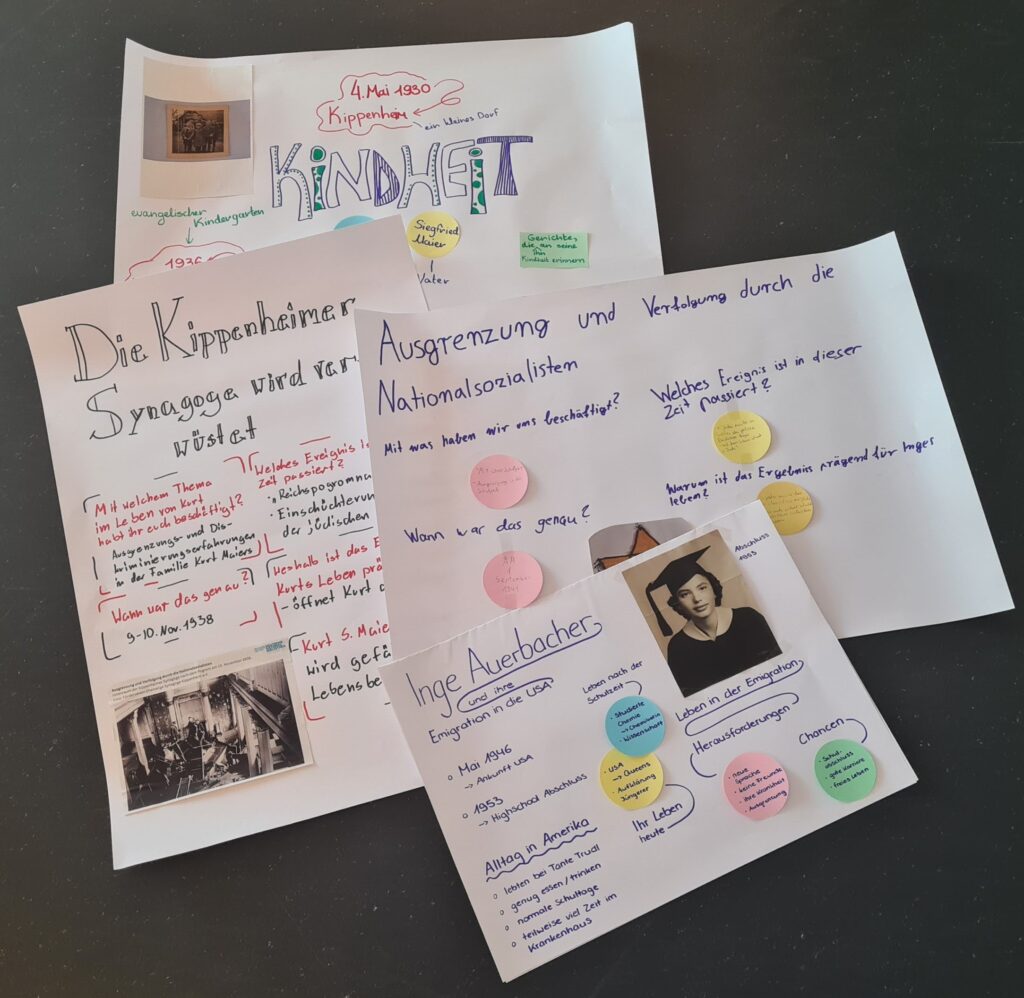 4. Mai 1930
Kippenheim
ein kleines Dorf
KINDHEIT
evangelischer
Kindergarten
1936
Siegfried
Maier
Vater
Gerichte,
die an seine
Kindheit erinnern
Die Kippenheimer
Synagoge wird ver
wüstet
Mit welchem Thema
im Leben von Kurt
habt ihr euch beschäftigt?
Ausgrenzungs- und Dis-
kriminierungserfahrungen
in der Familie Kurt Maiers
Wann war das genau?
9-10. Nov. 1938
Welches Ereignis is
Zeit passiert?
Reichspogromna
Einschüchterun
der jüdischen
Weshalb ist das E
Kurts Leben prä
- öffnet Kurt
Kurt S. Maie
wird gefä
Lebensbe
Ausgrenzung und Verfolgung durch die Nationalsozialisten
Ausgrenzung und Verfolgung durch die
Nationalsozialisten
Mit was haben wir uns beschäftigt?
Wann war das genau?
1941
Welches Ereignis ist in dieser
Zeit passiert?
Warum ist das Ergebnis prägend für Inges
leben?
Inge Auerbacher
und ihre
Emigration in die USA
Mai 1946
→ Ankunft USA
1953
→ Highschool Abschluss
Alltag in Amerika
lebten bei Tante Trudl
genug essen/trinken
normale Schultage
teilweise viel Zeit im
Krankenhaus
Leben nach der
Schulzeit
• Studierte
Chemie
→ Chemikerin
• Wissenschaft
• USA
→ Queens
• Aufklärung
Jüngerer
Ihr Leben
heute
Abschluss
Leben in der Emigration
Herausforderungen
• neue
Sprache
• keine Freunde
• ihre Krankheit
• Ausgrenzung
Chancen
• Schul-
abschluss
• gute Karriere
• freies Leben